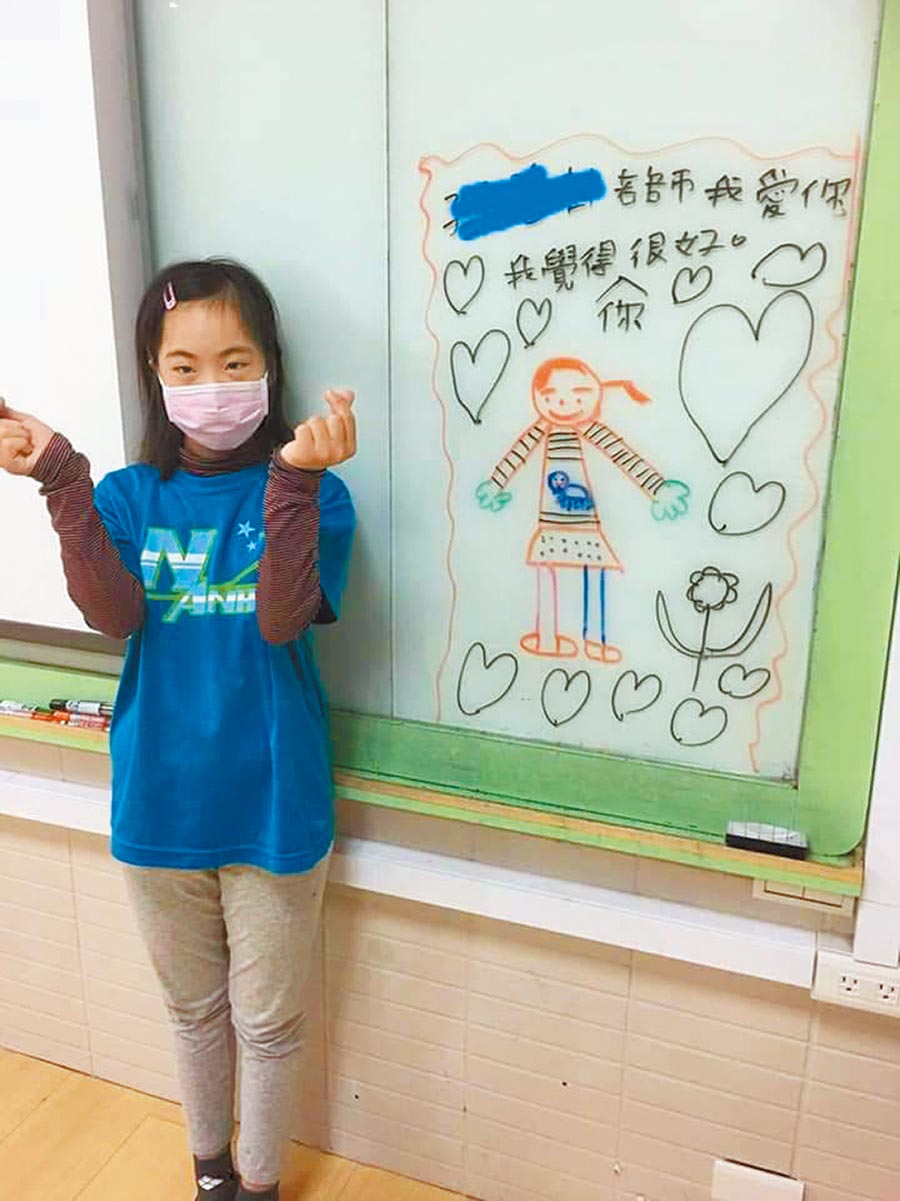 老師我愛你
我覺得很好。
你
N